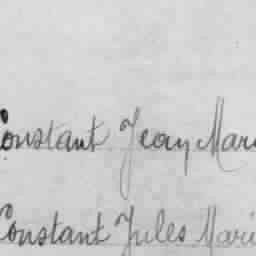 Constant Jean Mari
Constant Jules Mari